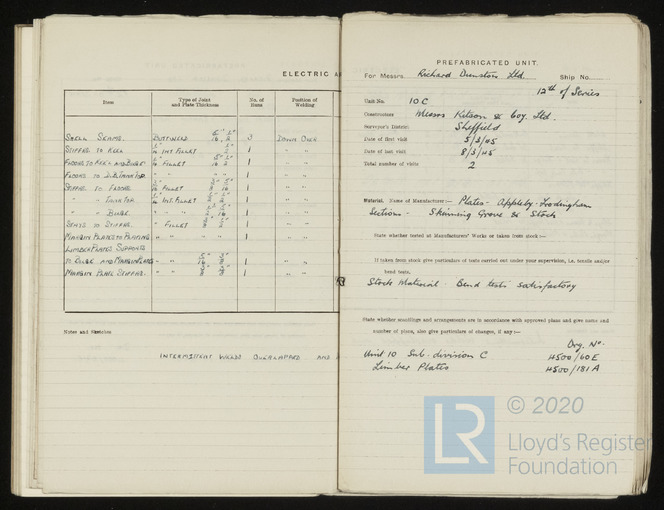 ELECTRIC
Item
Type of Joint and Plate Thickness
No. of Runs
Position of Welding
SHELL SEAMS. BUTTWELD 3 DOWN
STIFFRS. TO KEEL INT. FILLET 1 " "
FLOORS TO KEEL AND BULKR. FILLET 1 " "
FLOORS TO TANK TOP. " " 1 " "
STIFFRS. TO FLOORS. FILLET 1 " "
" " TANK TOP. INT. FILLET 1 " "
" " BULKR. " " 1 " "
SEATS TO STIFFRS. " FILLET 1 " "
MARGIN PLATES TO PLATING " " 1 " "
LIMBER PLATES SUPPORTS
TO BULKR AND MARGIN PLATES " " 1 " "
MARGIN PLATE STIFFRS. " " 1 " "
Notes and Sketches
INTERMITTENT WELDS OVERLAPPED AND
PREFABRICATED UNIT.
For Messrs. Richard Dunston Ltd. Ship No.
12th of Series
Unit No. 10 C
Constructors Messrs Kitson & Coy. Ltd.
Surveyor's District Sheffield
Date of first visit 5/3/45
Date of last visit 8/3/45
Total number of visits 2
Material. Name of Manufacturer:— Plates - Appleby-Frodingham
Sections - Skinning Grove & Stock
State whether tested at Manufacturers' Works or taken from stock:—
If taken from stock give particulars of tests carried out under your supervision, i.e. tensile and/or
bend tests.
Stock Material - Bend tests satisfactory
State whether scantlings and arrangements are in accordance with approved plans and give name and
number of plans, also give particulars of changes, if any:—
Drg. No.
Unit 10 Sub-division C 4500/60E
Limber Plates 4500/181A
© 2020
LR
Lloyd's Register
Foundation